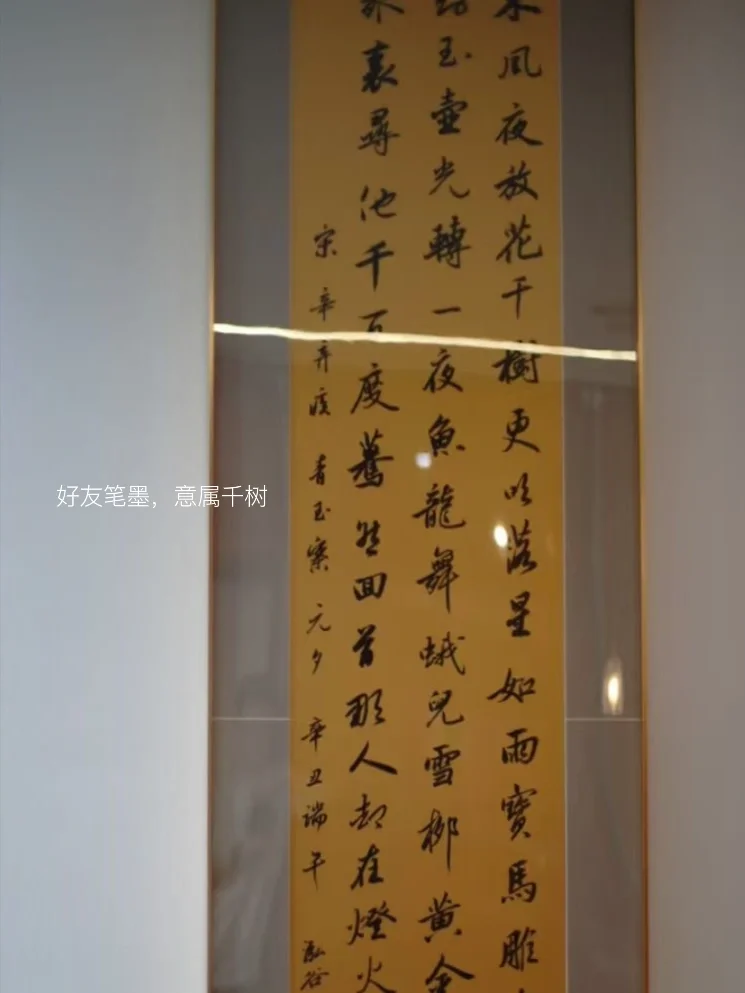 風夜放花千樹更吹落星如雨寶馬雕
玉壺光轉一夜魚龍舞蛾兒雪柳黃金
裏尋他千百度驀然回首那人却在燈火
宋 辛弃疾 青玉案 元夕 辛丑端午
好友笔墨，意属千树